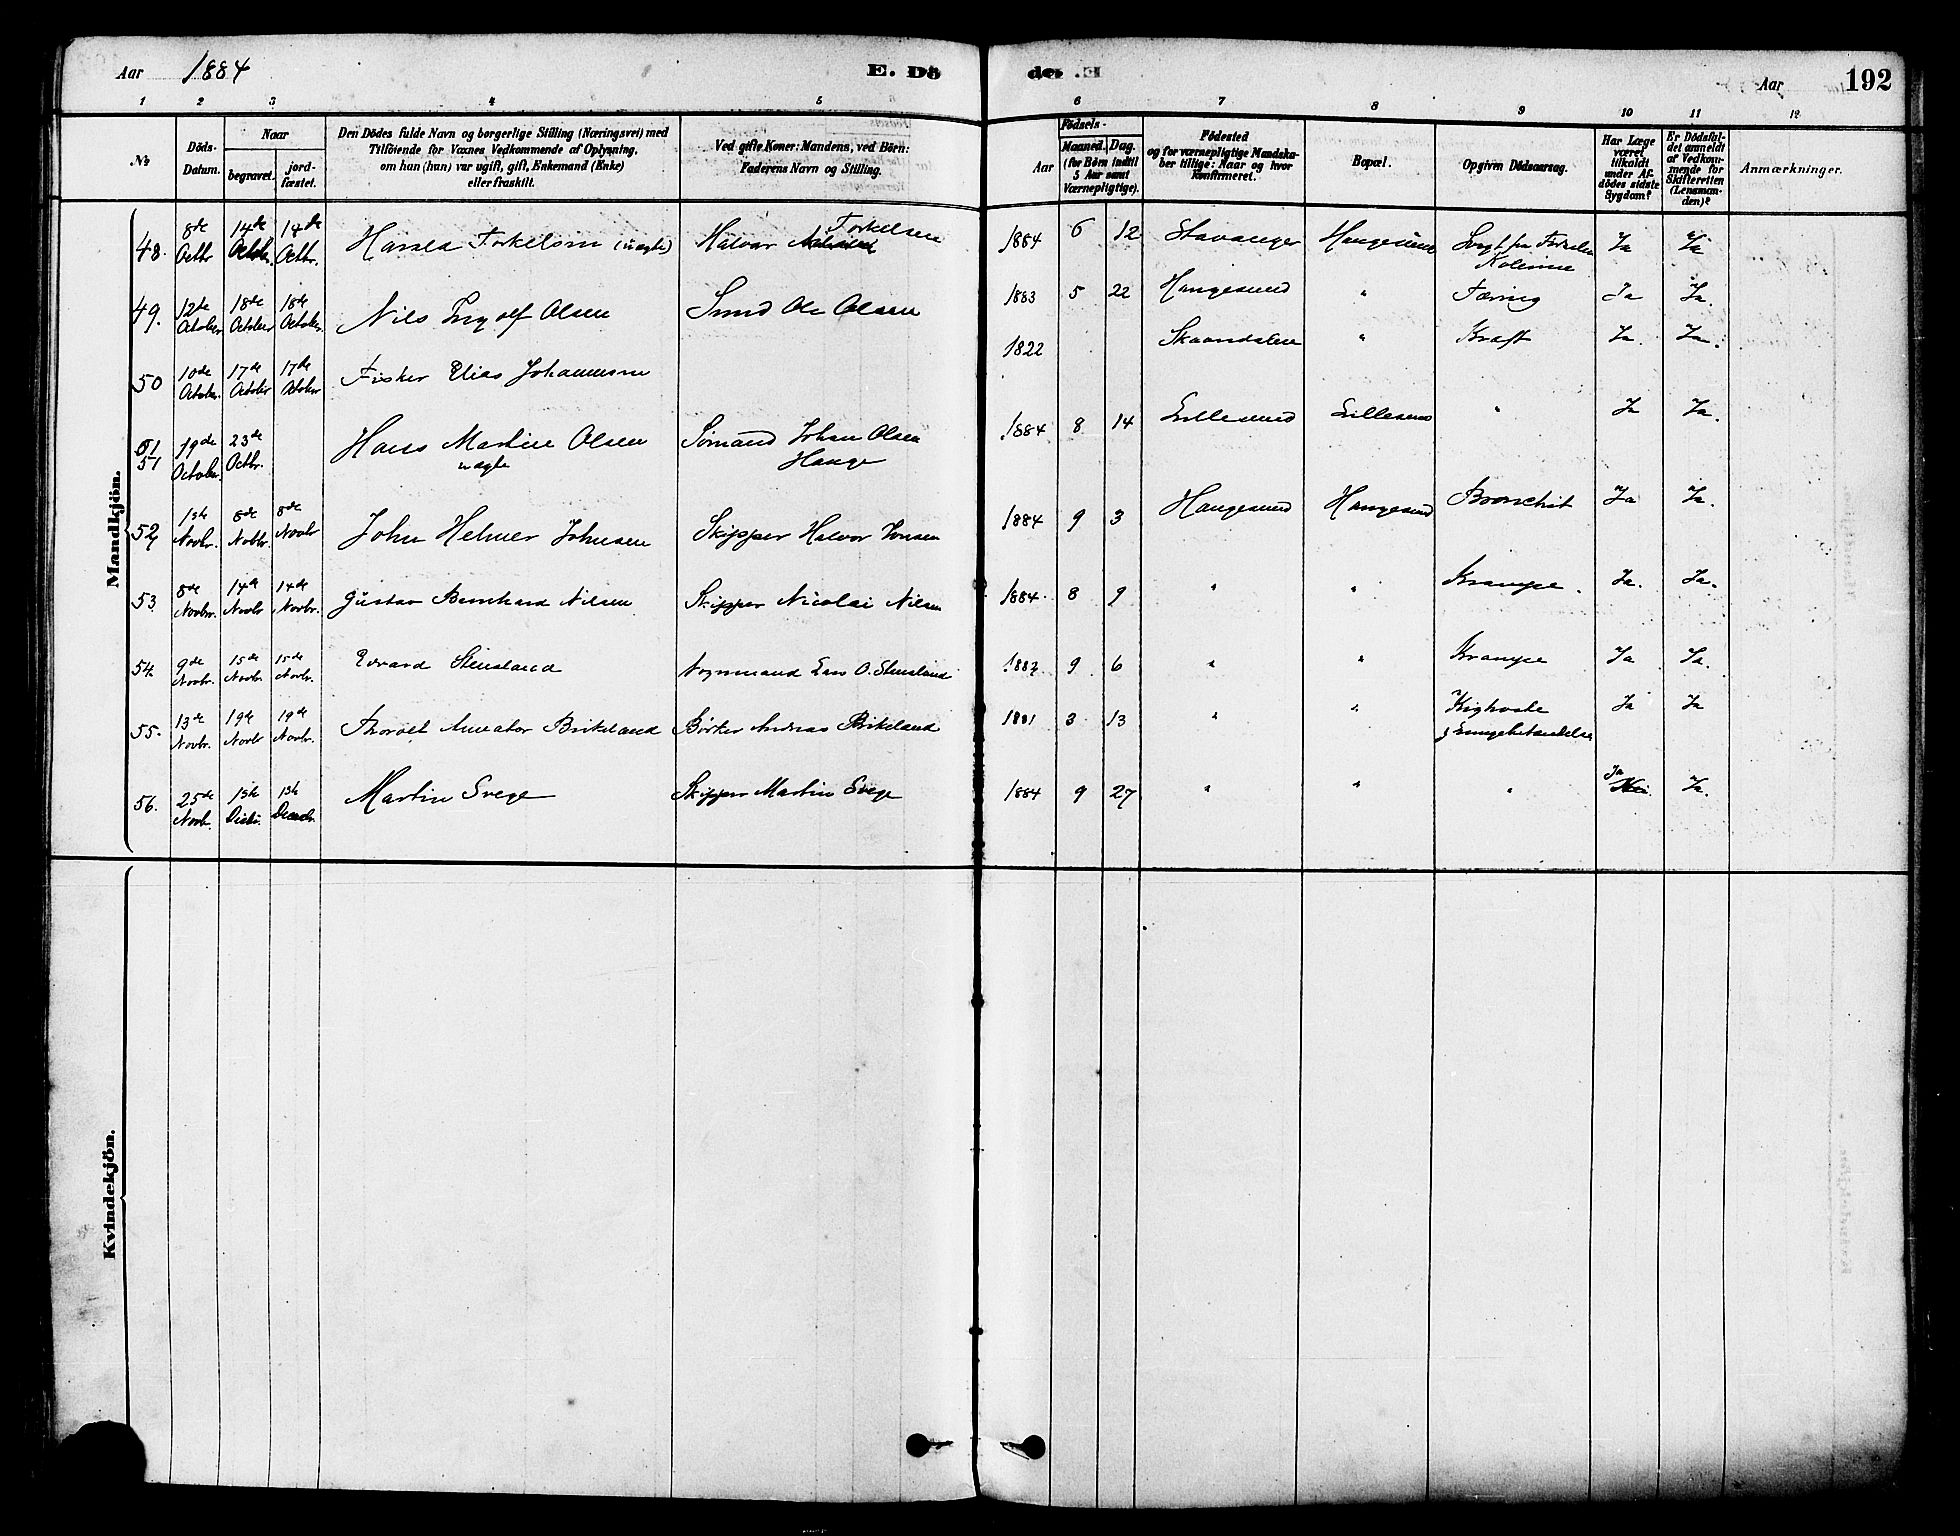 Aar 1884 E. Dö
de. E. Aar 192
1 2 3 4 5 6 7 8 9 10 11 12
No Döds-Datum. Naar begravet. jord-fæstet. Den Dödes fulde Navn og borgerlige Stilling (Næringsvei) med
Tilföiende for Voxnes Vedkommende af Oplysning,
om han (hun) var ugift, gift, Enkemand (Enke)
eller fraskilt.
Ved gifte Koner: Mandens, ved Börn:
Faderens Navn og Stilling.
Födsels-
Aar Maaned. Dag.
(for Börn indtil
5 Aar samt
Værnepligtige).
Födested
og for værnepligtige Mandska-
ber tillige: Naar og hvor
Konfirmeret.
Bopæl.
Opgiven Dödsaarsag.
Har Læge
været
tilkaldt
under Af-
dödes sidste
Sygdom?
Er Dödsfal-
det anmeldt
af Vedkom-
mende for
Skifteretten
(Lensman-
den)?
Anmærkninger.
Mandkjön.
48. 8de Octbr 14de Octobr. 14de Octbr. Torkelsen (uægte) Halvor Torkelsen 1884 6 12 Stavanger Haugesund Svagt fra Fødselen Kolerine Ja Ja
49. 12te October 18de October 18de October Nils Ingolf Olsen Smed Ole Olsen 1883 5 22 Haugesund " Tæring Ja Ja.
50 10de October. 17de October 17de October Fisker Elias Johannesen 1822 " Kræft Ja. Ja.
51 19de October 23de Octbr. Hans Martin Olsen uægte Sømand Johan Olsen Hauge 1884 8 14 Lillesund Lillesund " Ja Ja.
52 1ste Novbr. 8de Novbr. 8de Novbr John Helmer Johnsen Skipper Halvor Jonsen 1884 9 3 Haugesund Haugesund Bronchit Ja Ja.
53. 8de Novbr. 14de Novbr 14de Novbr. Gustav Bernhard Nilsen Skipper Nicolai Nilsen 1884 8 9 " " Krampe. Ja. Ja.
54. 9de Novbr. 15de Novbr. 15de Novbr. Edvard Stensland Vognmand Lars O. Stensland 9 6 " " Krampe Ja Ja.
55. 13de Novbr. 19de Novbr 19de Novbr. Thorolf Birkeland Bødker Andreas Birkeland 1881 3 13 " " Kighoste & Lungebetændelse Ja Ja
56. 25de Novb. 1ste 1ste Martin Svege Skipper Martin Svege 1884 9 27 " " " Ja Nei. Ja.
Kvindekjön.